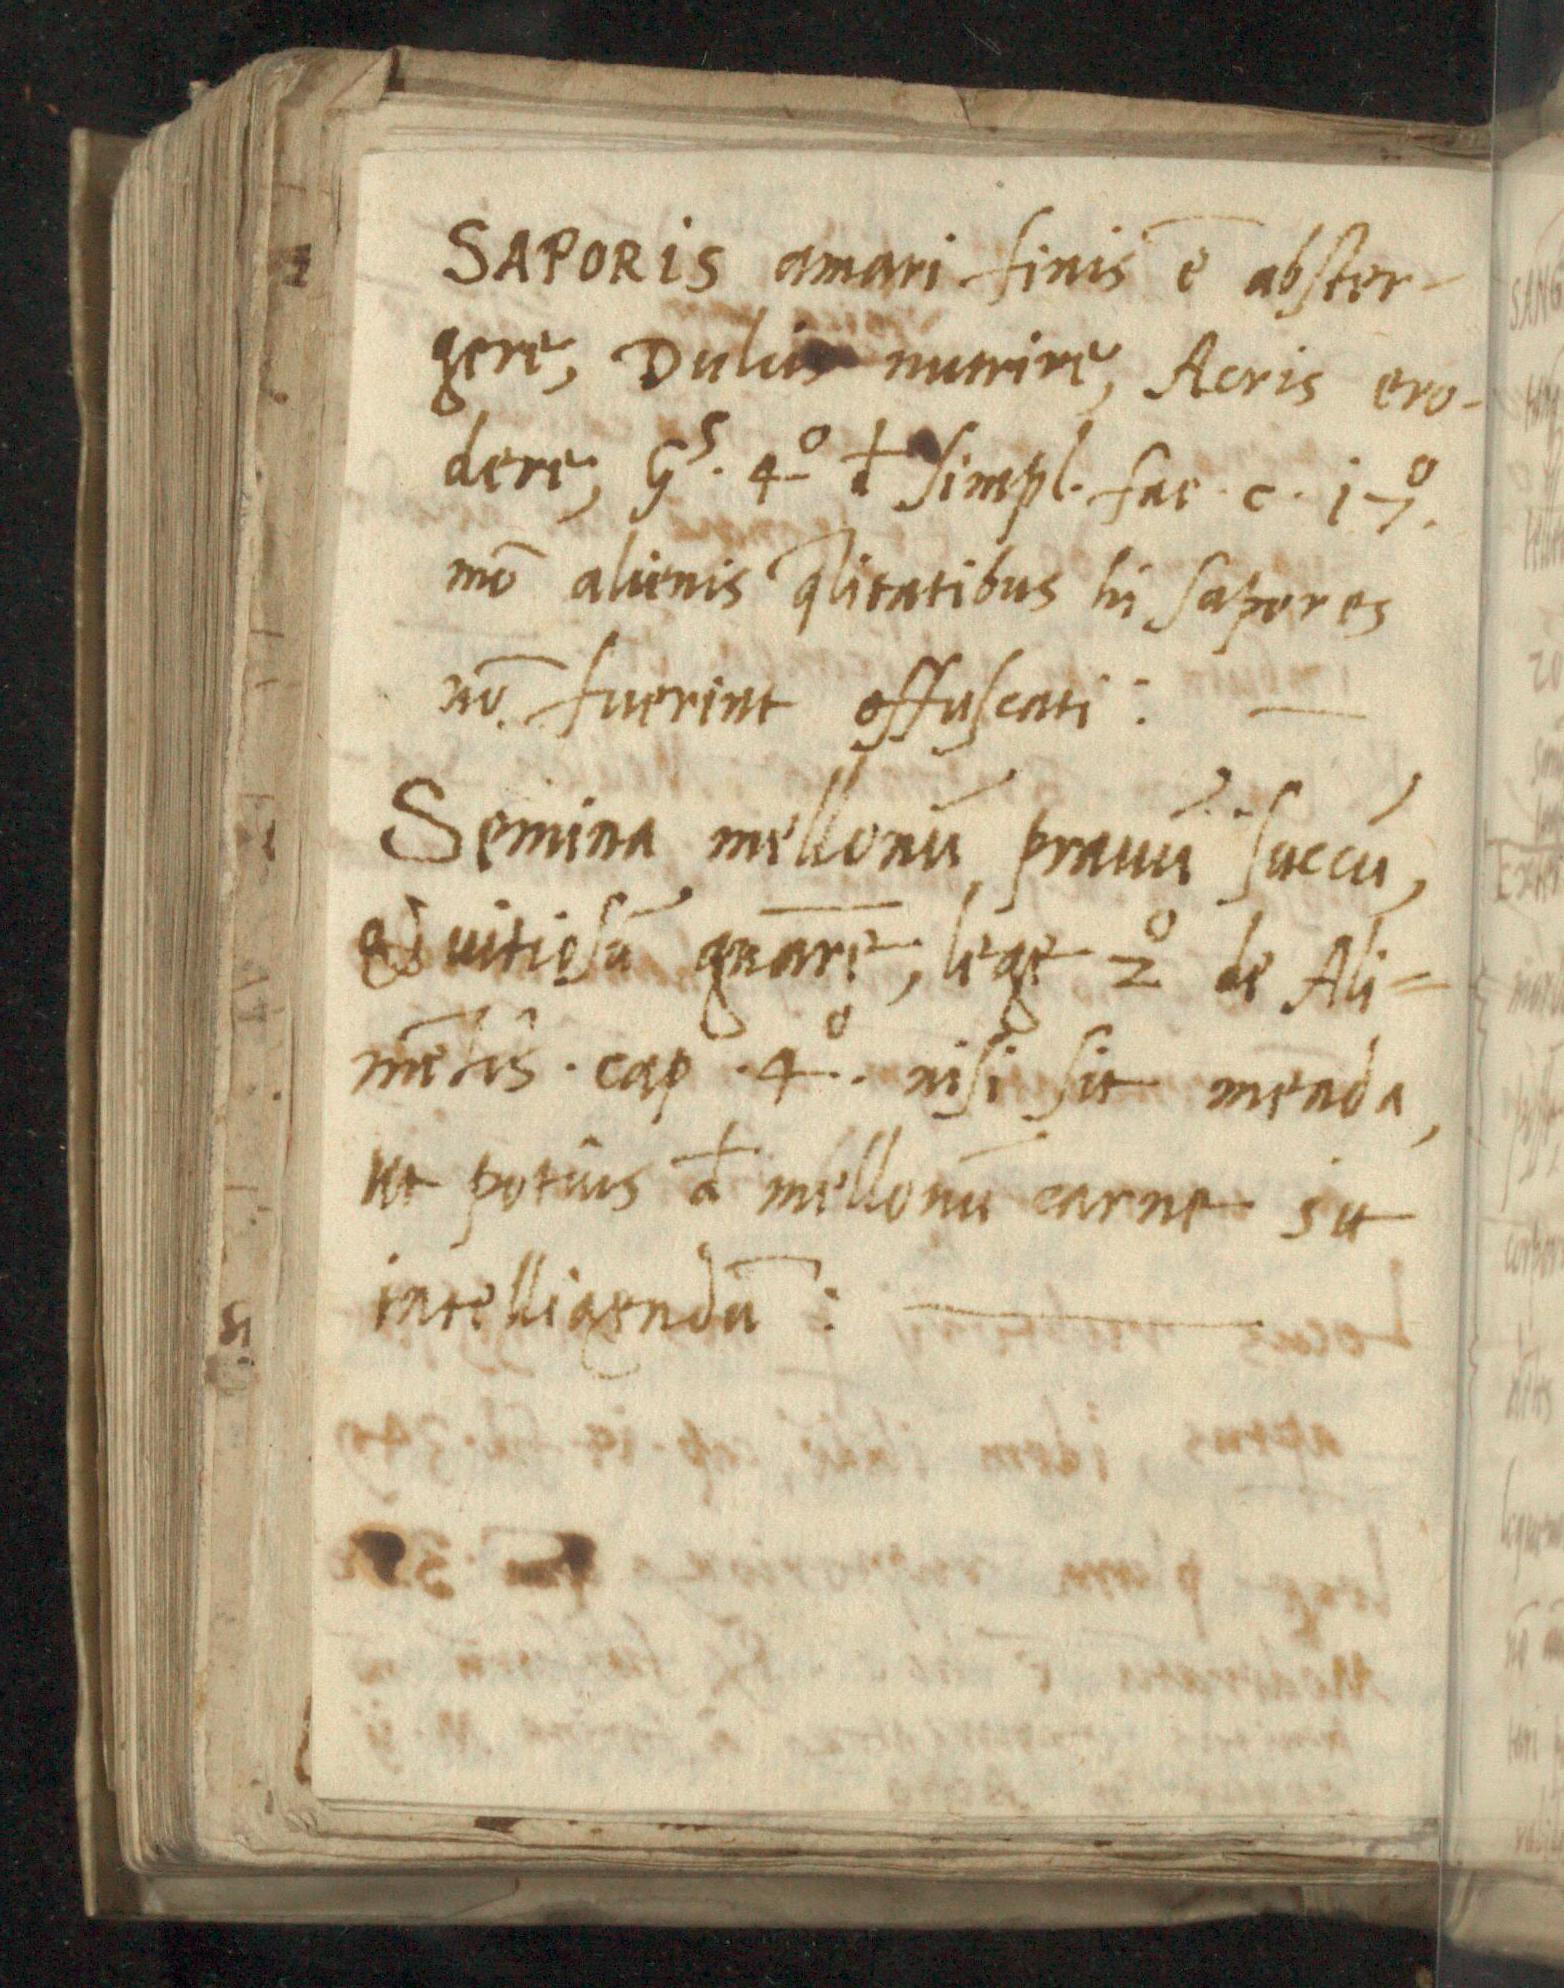 SAPORIS amari finis ē abster-
gere, Dulcis nutrire, Acris ero-
dere, Gˢ. 4º đ simpl. fac. c. 17º.
mō alienis q̄litatibus hi sapores
nō fuerint offuscati:
Semina mellonū prauū succū,
& uitiosū gnārē, lege 2º de Ali=
mētis. cap. 4º. nisi sit menda,
ut potius đ mellonū carne sit
intelligendū: